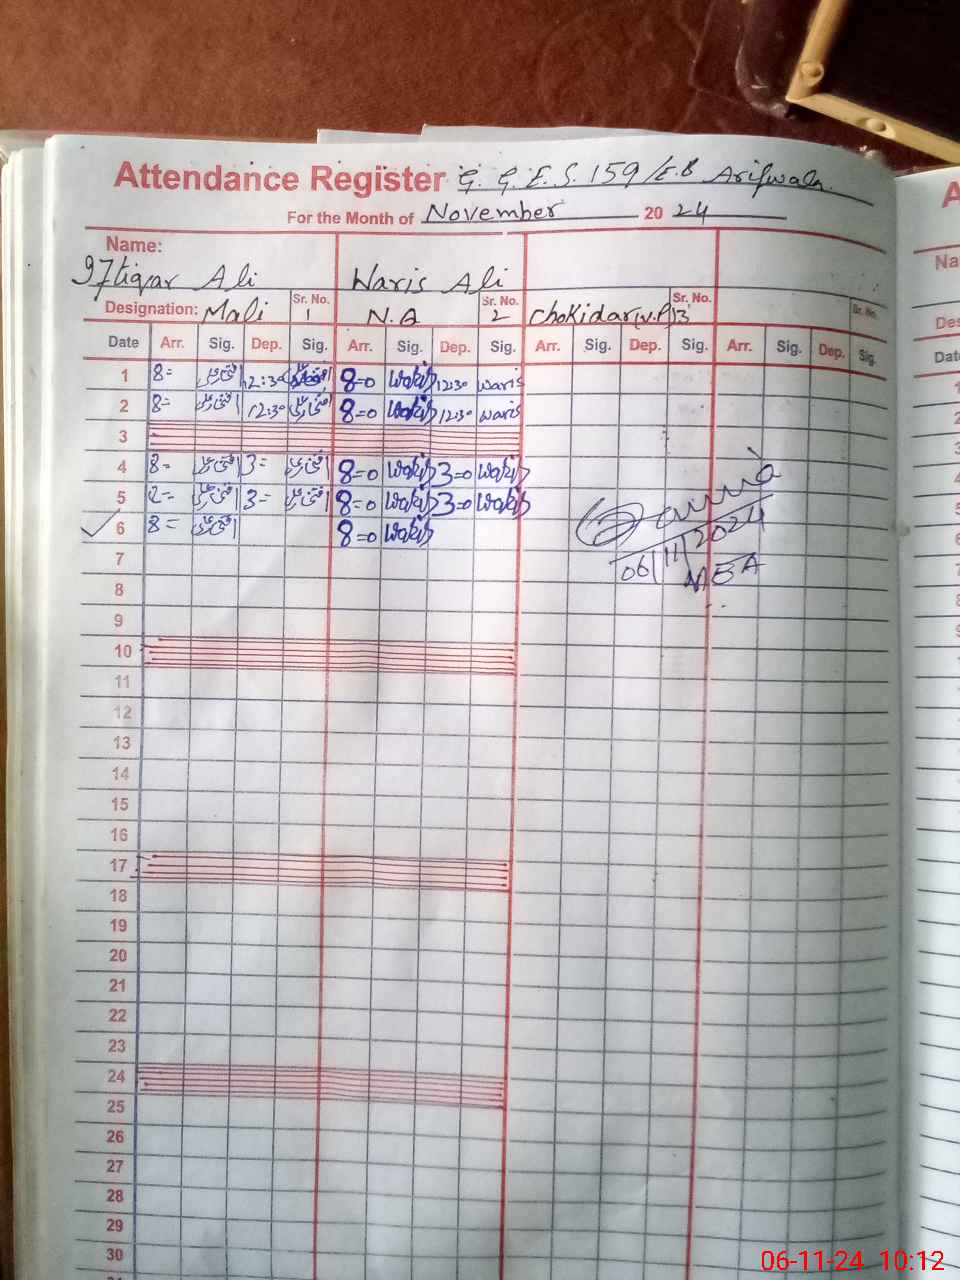 Attendance Register G. G.E.S. 159/E.B Arifwala
For the Month of November 2024
Name:
Iftiqar Ali Waris Ali
Designation: Mali Sr. No. 1 N.A Sr. No. 2 Chokidar (V.P) Sr. No. 3 Sr. No.
Date Arr. Sig. Dep. Sig. Arr. Sig. Dep. Sig. Arr. Sig. Dep. Sig. Arr. Sig. Dep. Sig.
1 8= افتخار علی 12:30 افتخار علی 8=0 Waris 12:30 Waris
2 8= افتخار علی 12:30 افتخار علی 8=0 Waris 12:30 Waris
3
4 8= افتخار علی 3= افتخار علی 8=0 Waris 3=0 Waris
5 افتخار علی 3= افتخار علی 8=0 Waris 3=0 Waris
6 8= افتخار علی 8=0 Waris
06/11/2024
MEA
7
8
9
10
11
12
13
14
15
16
17
18
19
20
21
22
23
24
25
26
27
28
29
30
A
Na
Des
Dat
06-11-24 10:12